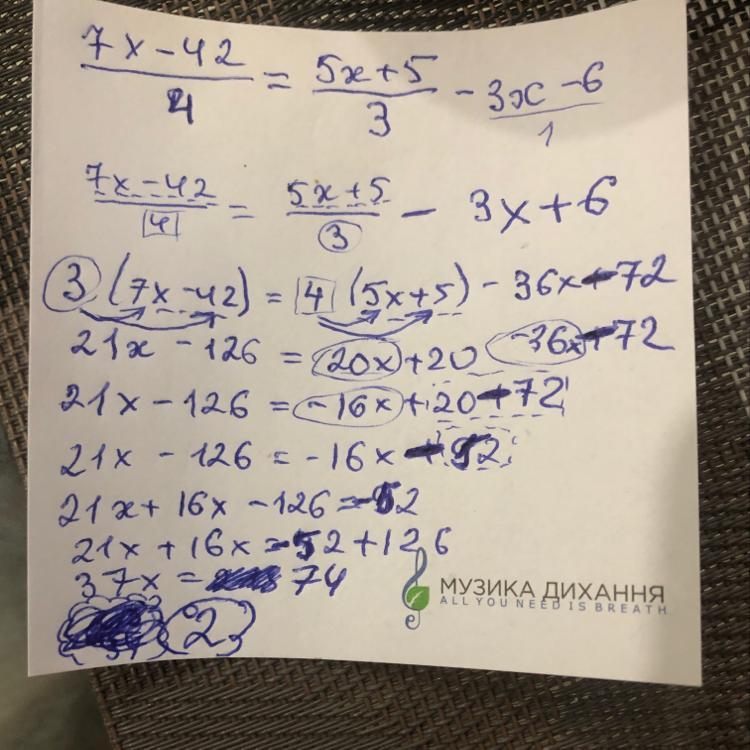 7x-42/4 = 5x+5/3 - 3x-6/1
7x-42/4 = 5x+5/3 - 3x+6
3(7x-42) = 4(5x+5) - 36x-72
21x-126 = 20x+20 -36x-72
21x-126 = -16x+20-72
21x-126 = -16x-52
21x+16x-126=-52
21x+16x=-52+126
37x= 74
2
МУЗИКА ДИХАННЯ
ALL YOU NEED IS BREATH